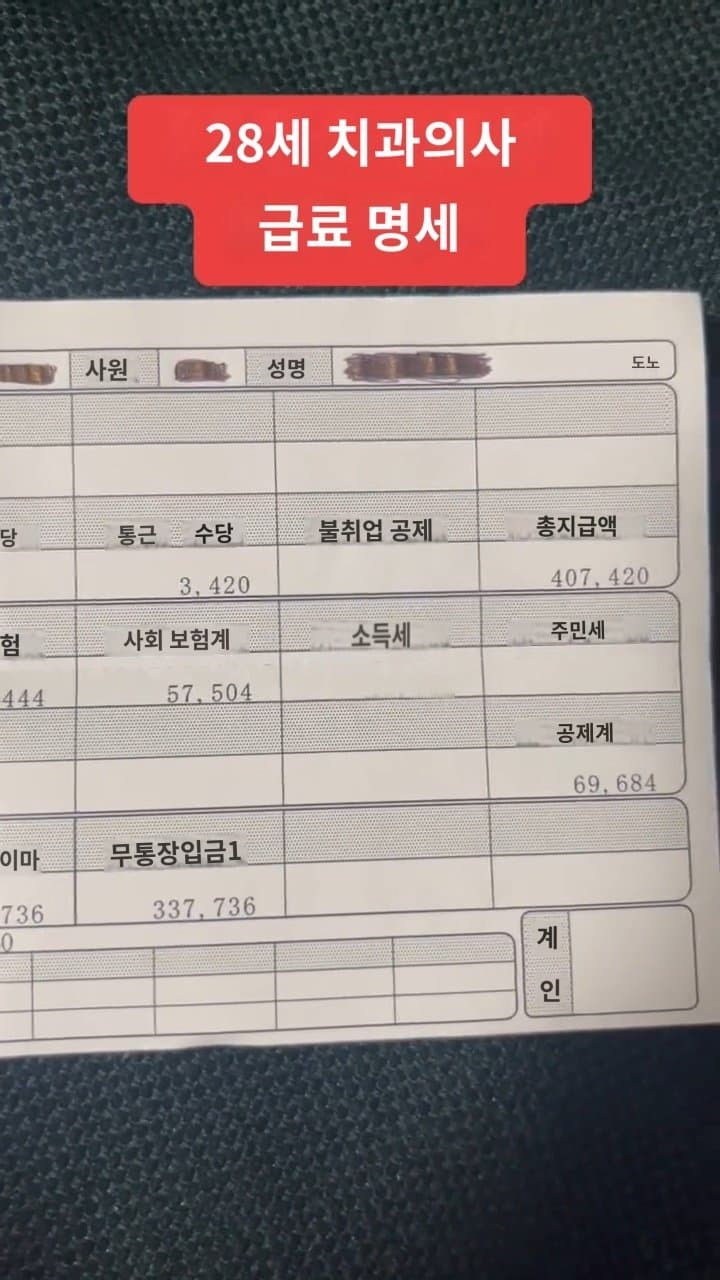 28세 치과의사
급료 명세
사원 성명 도노
당 통근 수당 불취업 공제 총지급액
3,420 407,420
험 사회 보험계 소득세 주민세
444 57,504
공제계
69,684
이마 무통장입금1
736 337,736
0
계
인